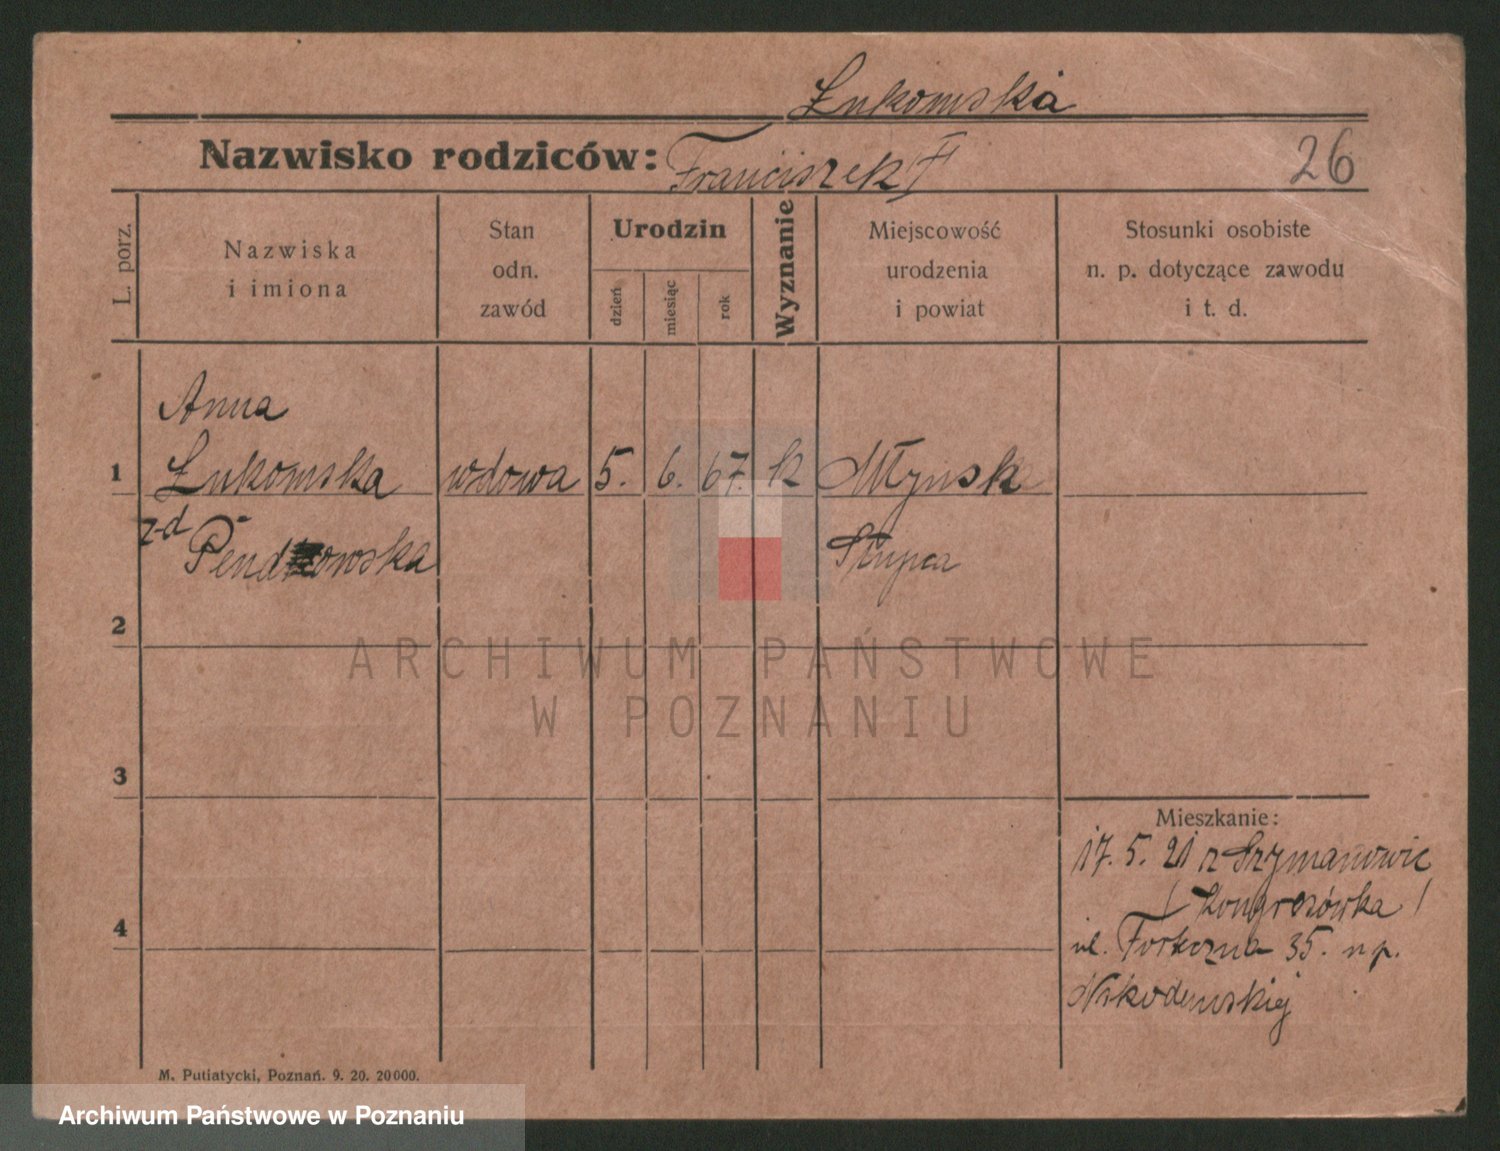 Łukomska
Nazwisko rodziców: Franciszek †
26
L. porz.
Nazwiska
i imiona
Stan
odn.
zawód
Urodzin
dzień
miesiąc
rok
Wyznanie
Miejscowość
urodzenia
i powiat
Stosunki osobiste
n. p. dotyczące zawodu
i t. d.
Anna
1 Łukomska wdowa 5. 6. 67. k Młynsk
z-d
Slupca
2
ARCHIWUM PAŃSTWOWE
W POZNANIU
3
Mieszkanie:
17. 5. 21 z Szymanowic
( Kongresówka )
4
ul. Forteczna 35. n p.
Nikodemskiej
M. Putiatycki, Poznań. 9. 20. 20000.
Archiwum Państwowe w Poznaniu